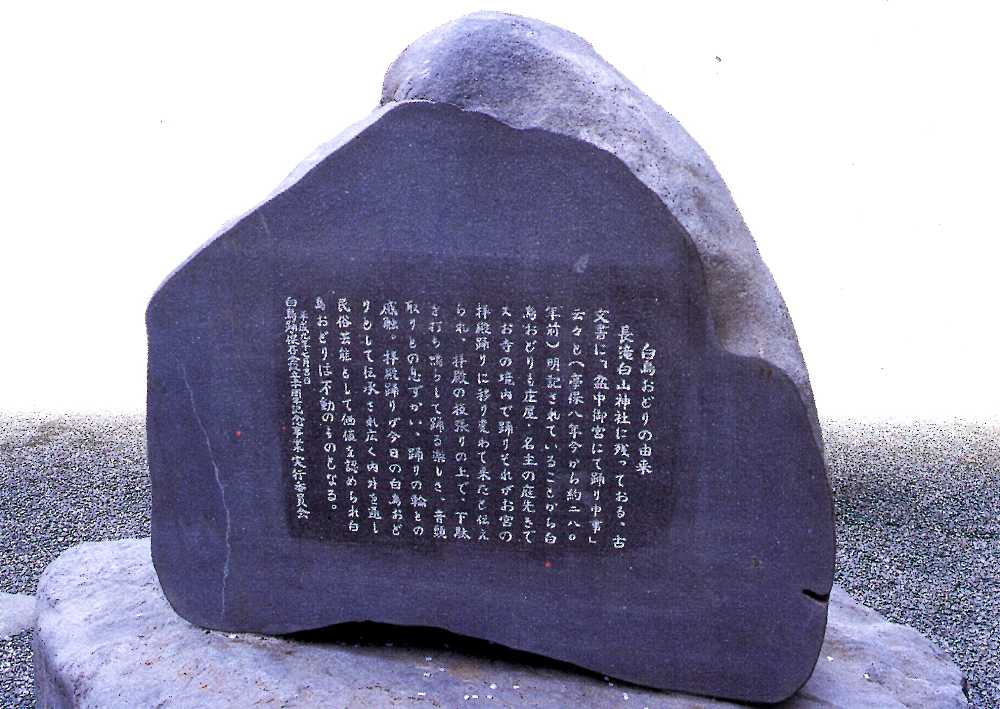 白鳥おどりの由来
長滝白山神社に残っておる、古
文書に、「盆中御宮にて踊り申事」
云々と（享保八年今から約二八〇
年前）明記されていることから白
鳥おどりも庄屋・名主の庭先きで
又お寺の境内で踊りそれがお宮の
拝殿踊りに移り変わて来たと伝え
られ、拝殿の板張りの上で、下駄
を打ち鳴らして踊る楽しさ、音頭
取りとの息ずかい、踊りの輪との
感触。拝殿踊りが今日の白鳥おど
りとして伝承され広く内外を通し
民俗芸能として価値を認められ白
鳥おどりは不動のものとなる。
平成九年七月吉日
白鳥踊保存会設立五十周年記念事業実行委員会